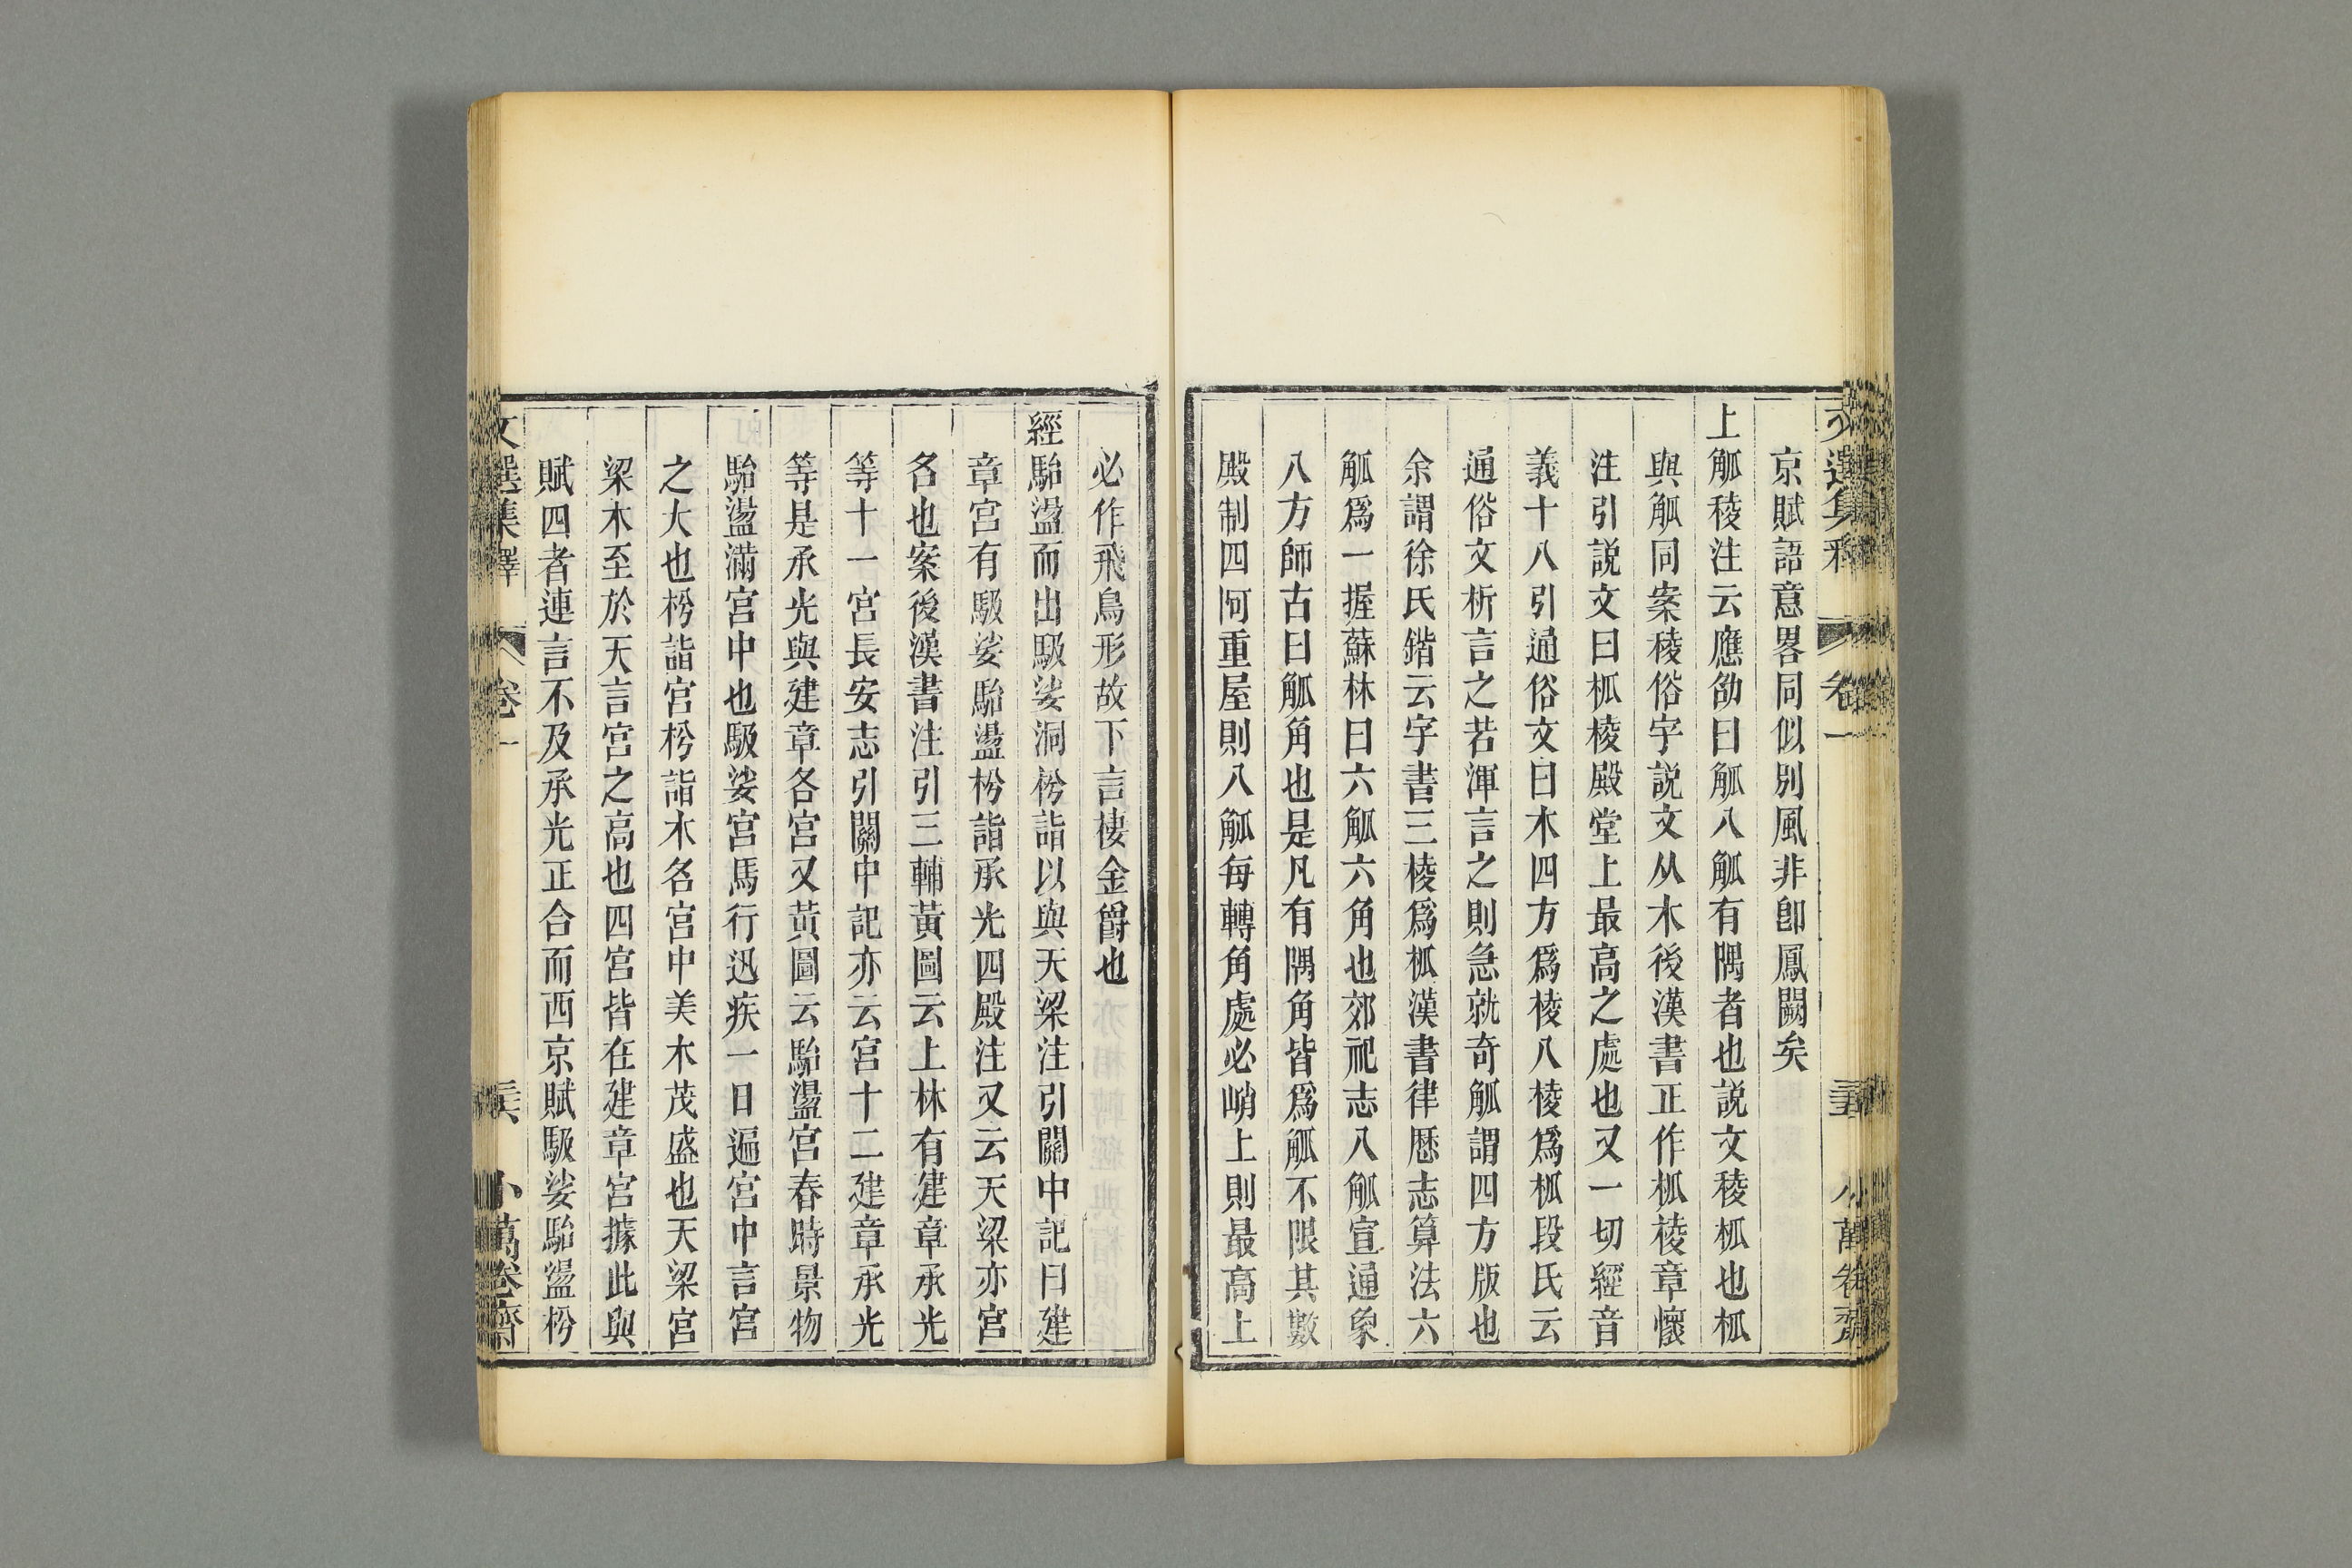 文選集釋 卷一 三五 小萬卷齋
京賦語意畧同似別風非卽鳳闕矣
上觚稜注云應劭曰觚八觚有隅者也説文稜柧也柧
與觚同案稜俗字説文从木後漢書正作柧棱章懷
注引説文曰柧棱殿堂上最高之處也又一切經音
義十八引通俗文曰木四方爲棱八棱爲柧段氏云
通俗文析言之若渾言之則急就奇觚謂四方版也
余謂徐氏鍇云字書三棱爲柧漢書律厯志算法六
觚爲一握蘇林曰六觚六角也郊祀志八觚宣通象
八方師古曰觚角也是凡有隅角皆爲觚不限其數
殿制四阿重屋則八觚每轉角處必峭上則最高上
必作飛鳥形故下言棲金爵也
經駘盪而出馺娑洞枍詣以與天梁注引關中記曰建
章宮有馺娑駘盪枍詣承光四殿注又云天梁亦宮
名也案後漢書注引三輔黃圖云上林有建章承光
等十一宮長安志引關中記亦云宮十二建章承光
等是承光與建章各宮又黃圖云駘盪宮春時景物
駘盪滿宮中也馺娑宮馬行迅疾一日遍宮中言宮
之大也枍詣宮枍詣木名宮中美木茂盛也天梁宮
梁木至於天言宮之高也四宮皆在建章宮據此與
賦四者連言不及承光正合而西京賦馺娑駘盪枍
文選集釋 卷一 小萬卷齋